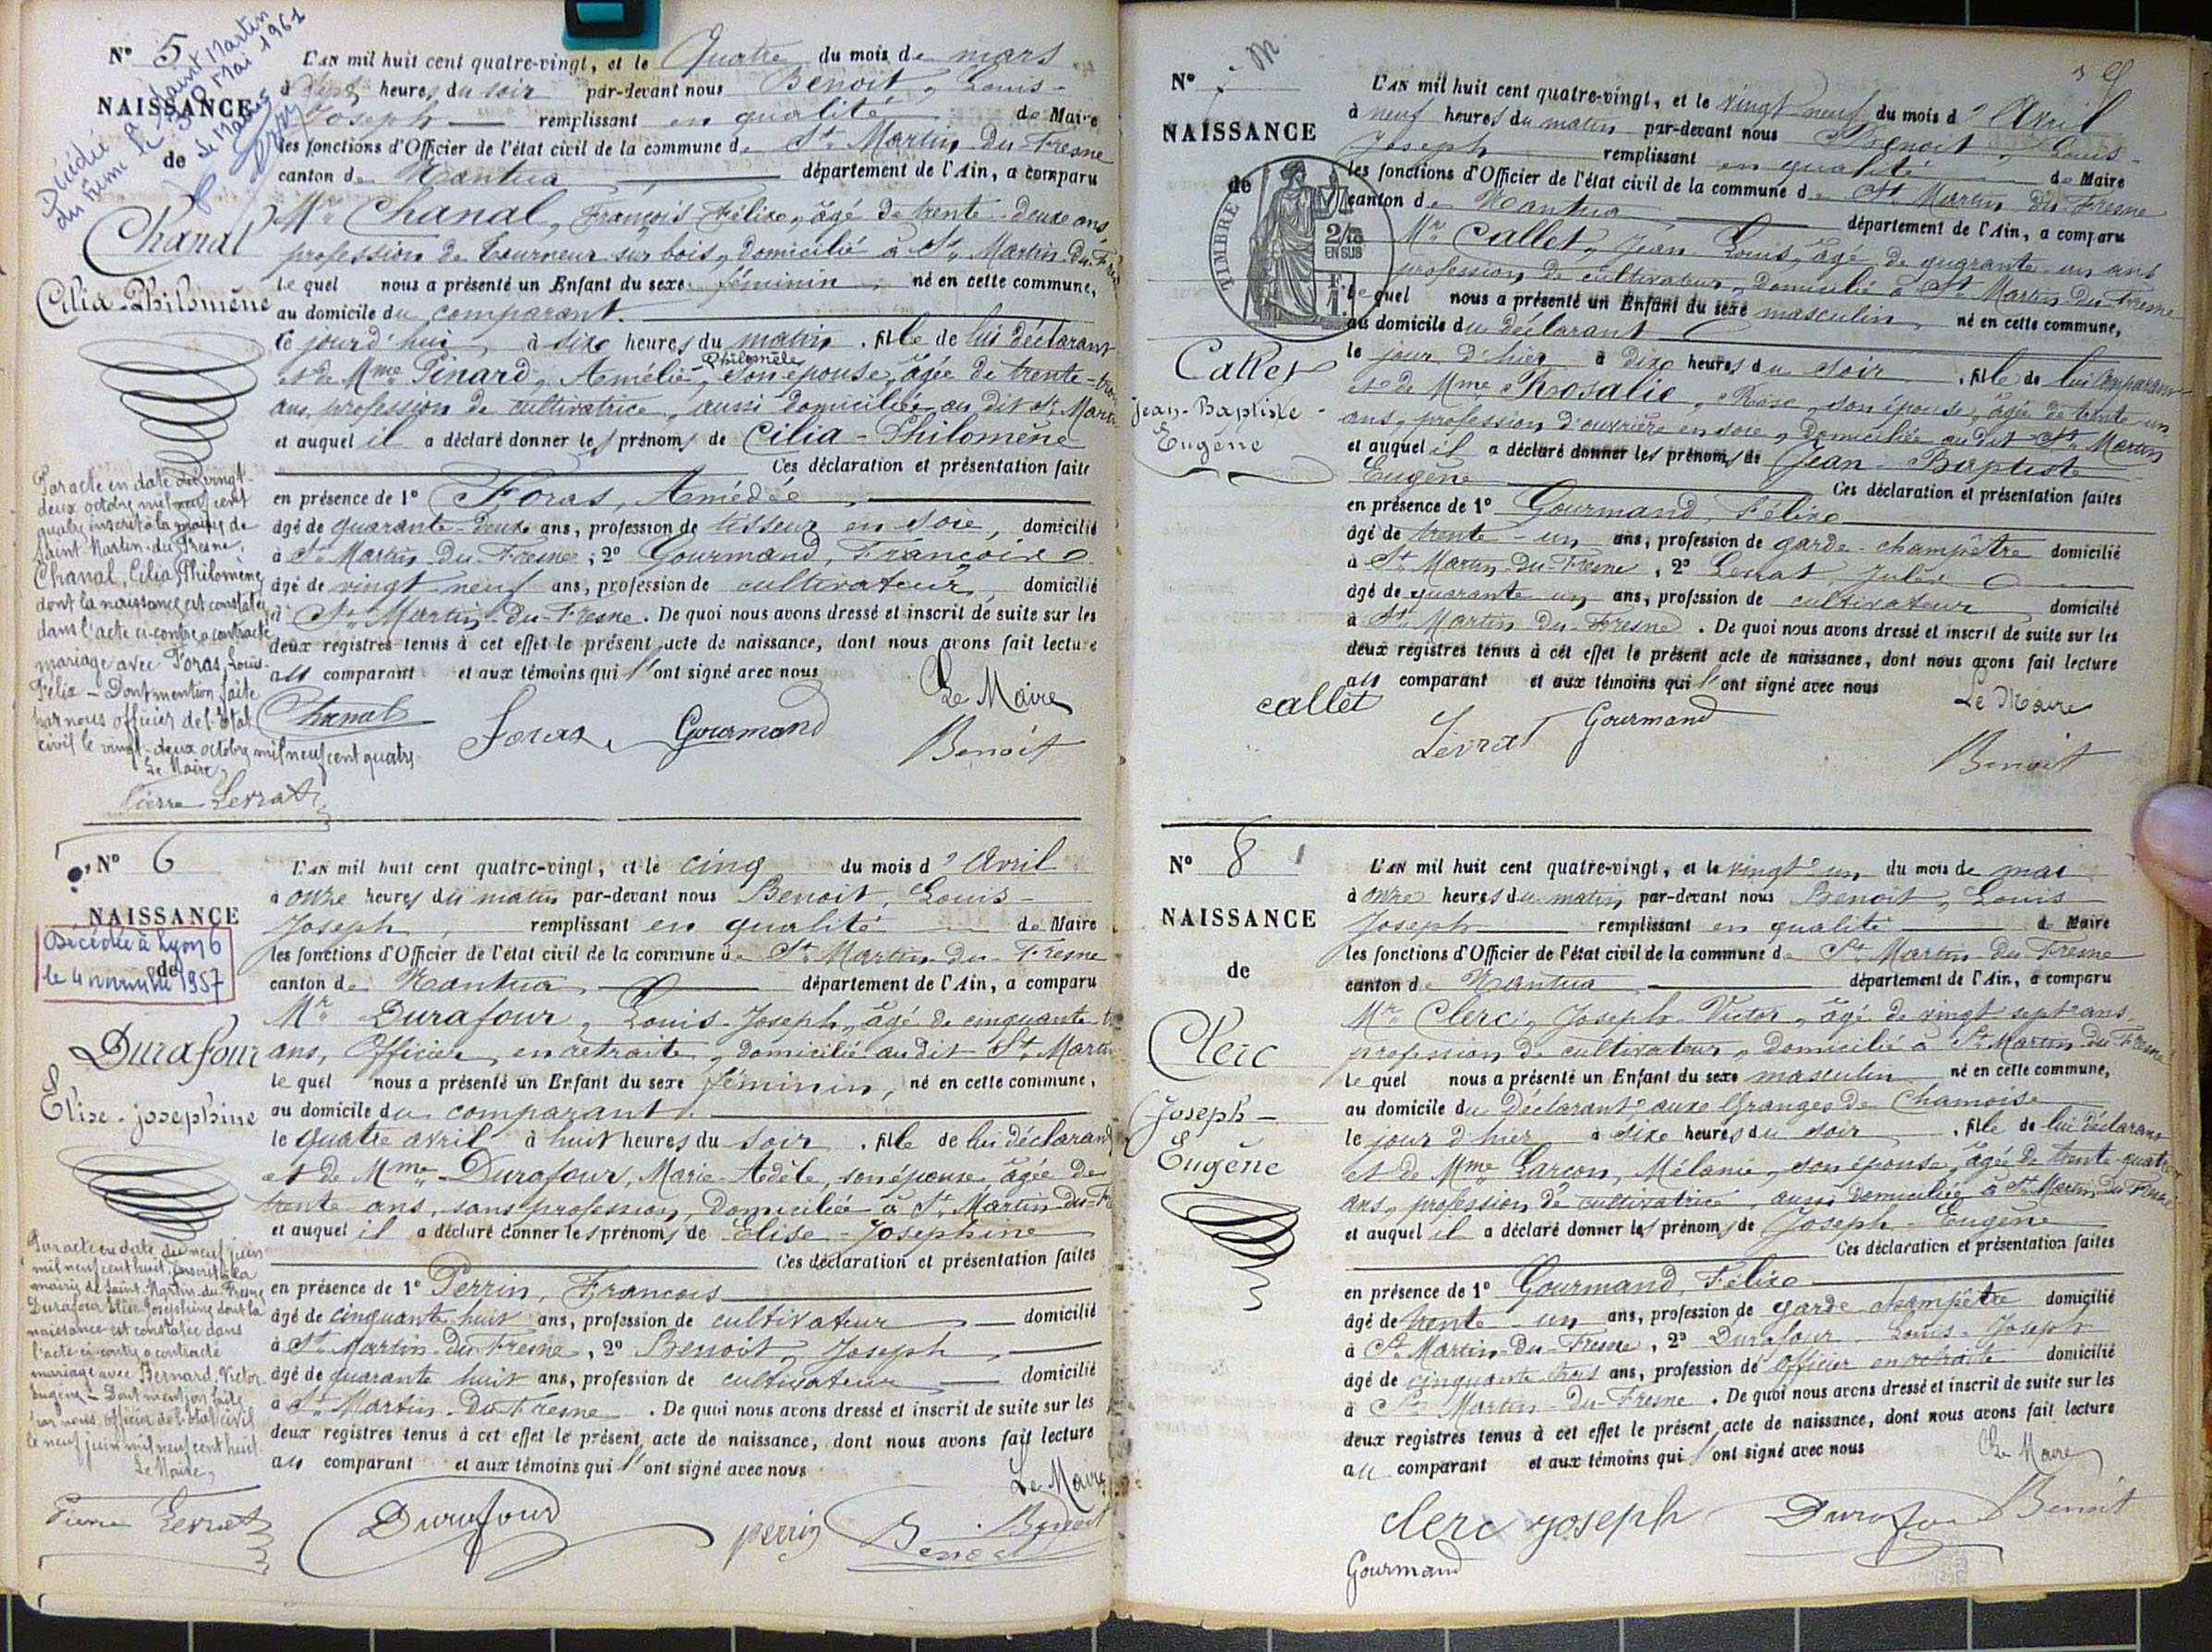 N° 5
NAISSANCE
de
Décédée à Saint Martin
du Frêne le 30 Mai 1961
Le Maire
Chanal
Cilia-Philomène
L'AN mil huit cent quatre-vingt, et le Quatre du mois de mars
à heures du soir par-devant nous Benoit, Louis-
Joseph remplissant en qualité de Maire
les fonctions d'Officier de l'état civil de la commune de St Martin du Fresne
canton de Nantua département de l'Ain, a comparu
Mr Chanal, François Félixe, âgé de trente-deux ans
profession de tourneur sur bois, domicilié à St Martin-du-Fres
le quel nous a présenté un Enfant du sexe féminin, né en cette commune,
au domicile du comparant.
le jourd'hui, à dixe heures du matin, fille de lui déclarant
et de Mme Pinard, Amélie-Philomèle, son épouse, âgée de trente-trois
ans, profession de cultivatrice, aussi domiciliée au dit St Martin
et auquel il a déclaré donner les prénoms de Cilia-Philomène
Ces déclaration et présentation faite
en présence de 1° Foras, Amédée
âgé de quarante-deux ans, profession de tisseur en soie, domicilié
à St Martin-du-Fresne, 2° Gourmand, François
âgé de vingt neuf ans, profession de cultivateur domicilié
à St Martin-du-Fresne. De quoi nous avons dressé et inscrit de suite sur les
deux registres tenus à cet effet le présent acte de naissance, dont nous avons fait lecture
au comparant et aux témoins qui l'ont signé avec nous
Le Maire
Chanal Foras Gourmand Benoit
Par acte en date du vingt-
deux octobre mil neuf cent
quatre inscrit à la mairie de
Saint-Martin-du-Fresne,
Chanal, Cilia, Philomène
dont la naissance est constatée
dans l'acte ci-contre a contracté
mariage avec Foras, Louis-
Félix — Dont mention faite
par nous officier de l'Etat
civil le vingt-deux octobre mil neuf cent quatre.
Le Maire,
Pierre Levrat
N° 6
NAISSANCE
de
Décédée à Lyon 6
le 4 novembre 1957
Durafour
Elise-Josephine
L'AN mil huit cent quatre-vingt, et le cinq du mois d'Avril
à onze heures du matin par-devant nous Benoit, Louis-
Joseph, remplissant en qualité de Maire
les fonctions d'Officier de l'état civil de la commune de St Martin-du-Fresne
canton de Nantua, département de l'Ain, a comparu
Mr Durafour, Louis-Joseph, âgé de cinquante-
ans, Officier en retraite, domicilié audit St Martin
le quel nous a présenté un Enfant du sexe féminin, né en cette commune,
au domicile du comparant.
le quatre avril à huit heures du soir, fille de lui déclarant
et de Mme Durafour, Marie-Adèle, son épouse, âgée de
trente ans, sans profession, domiciliée à St Martin-du-Fr
et auquel il a déclaré donner les prénoms de Elise-Josephine
Ces déclaration et présentation faites
en présence de 1° Perrin, François
âgé de cinquante huit ans, profession de cultivateur domicilié
à St Martin-du-Fresne, 2° Benoit, Joseph,
âgé de quarante huit ans, profession de cultivateur domicilié
à St Martin-du-Fresne. De quoi nous avons dressé et inscrit de suite sur les
deux registres tenus à cet effet le présent acte de naissance, dont nous avons fait lecture
au comparant et aux témoins qui l'ont signé avec nous
Le Maire
Durafour perrin Benoit Benoit
Par acte en date du neuf juin
mil neuf cent huit, inscrit à la
mairie de Saint-Martin-du-Fresne
Durafour Elise Josephine dont la
naissance est constatée dans
l'acte ci-contre a contracté
mariage avec Bernard, Victor
Eugène — Dont mention faite
par nous, officier de l'état civil
le neuf juin mil neuf cent huit.
Le Maire,
Pierre Levrat
N°
NAISSANCE
de
TIMBRE
2/10
EN SUS
Callet
Jean-Baptiste-
Eugène
L'AN mil huit cent quatre-vingt, et le vingt neuf du mois d'Avril
à neuf heures du matin par-devant nous Benoit, Louis-
Joseph remplissant en qualité de Maire
les fonctions d'Officier de l'état civil de la commune de St Martin du Fresne
canton de Nantua département de l'Ain, a comparu
Mr Callet, Jean-Louis, âgé de quarante-un ans
profession de cultivateur, domicilié à St Martin du Fresne
le quel nous a présenté un Enfant du sexe masculin, né en cette commune,
au domicile du déclarant
le jour d'hier à dixe heures du soir, fils de lui comparant
et de Mme Rosalie, Rose, son épouse, âgée de trente-un
ans, profession d'ouvrière en soie, domiciliée au dit St Martin
et auquel il a déclaré donner les prénoms de Jean-Baptiste
Eugène Ces déclaration et présentation faites
en présence de 1° Gourmand, Félixe
âgé de trente-un ans, profession de garde-champêtre domicilié
à St Martin-du-Fresne, 2° Levrat, Jules
âgé de quarante un ans, profession de cultivateur domicilié
à St Martin du-Fresne. De quoi nous avons dressé et inscrit de suite sur les
deux registres tenus à cet effet le présent acte de naissance, dont nous avons fait lecture
au comparant et aux témoins qui l'ont signé avec nous
Le Maire
callet Levrat Gourmand Benoit
N° 8
NAISSANCE
de
Clerc
Joseph-
Eugène
L'AN mil huit cent quatre-vingt, et le vingt-un du mois de mai
à onze heures du matin par-devant nous Benoit, Louis
Joseph remplissant en qualité de Maire
les fonctions d'Officier de l'état civil de la commune de St Martin-du-Fresne
canton de Nantua département de l'Ain, a comparu
Mr Clerc, Joseph-Victor, âgé de vingt sept ans,
profession de cultivateur, domicilié à St Martin du Fresne
le quel nous a présenté un Enfant du sexe masculin né en cette commune,
au domicile du Déclarant, auxe Granges de Chamoise
le jour d'hier à sixe heures du soir, fils de lui déclarant
et de Mme Garçon, Mélanie, son épouse, âgée de trente-quatre
ans, profession de cultivatrice, aussi domiciliée à St Martin du Fresne
et auquel il a déclaré donner les prénoms de Joseph-Eugène
Ces déclaration et présentation faites
en présence de 1° Gourmand, Félixe
âgé de trente-un ans, profession de garde champêtre domicilié
à St Martin-du-Fresne, 2° Durafour Louis-Joseph
âgé de cinquante trois ans, profession de officier en retraite domicilié
à St Martin-du-Fresne. De quoi nous avons dressé et inscrit de suite sur les
deux registres tenus à cet effet le présent acte de naissance, dont nous avons fait lecture
au comparant et aux témoins qui l'ont signé avec nous
Le Maire
clerc joseph Durafour Benoit
Gourmand